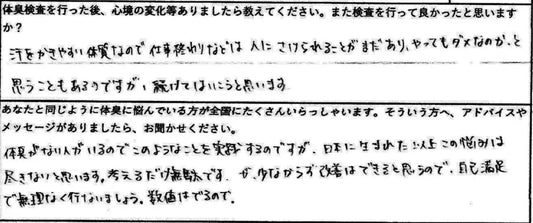 体臭検査を行った後、心境の変化等ありましたら教えてください。また検査を行って良かったと思います
か？
汗をかきやすい体質なので仕事終わりなどは人にさけられることがまだあり、やってもダメなのか、と
思うこともあるのですが、続けてはいこうと思います
あなたと同じように体臭に悩んでいる方が全国にたくさんいらっしゃいます。そういう方へ、アドバイスや
メッセージがありましたら、お聞かせください。
体臭がない人がいるのでこのようなことを実践するのですが、日本に生まれた以上この悩みは
尽きないと思います。考えるだけ無駄です が、少なからず改善はできると思うので、自己満足
で無理なく行ないましょう。数値はでるので。